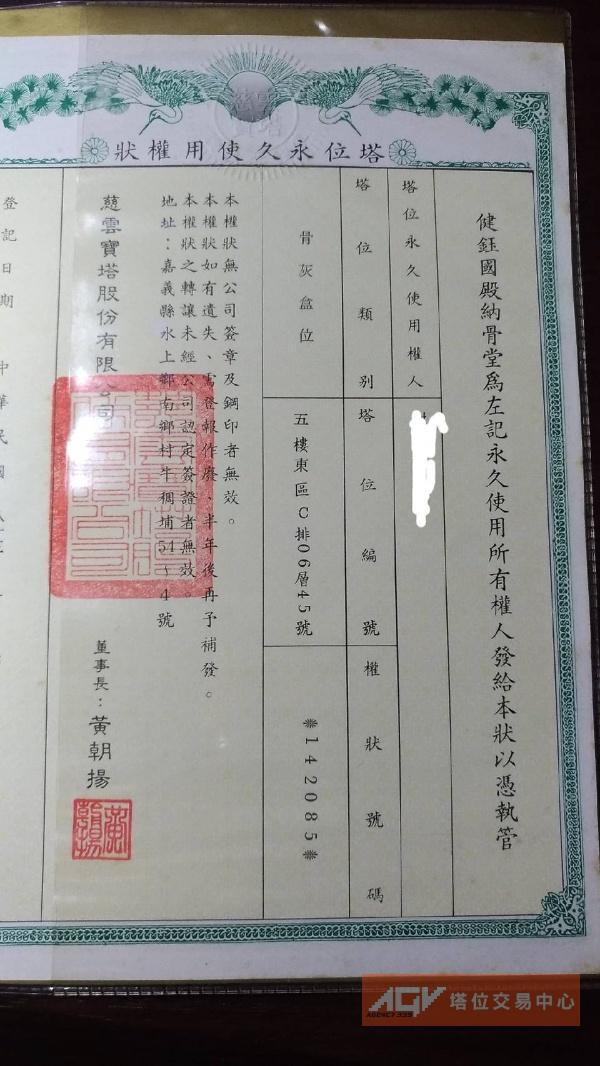 塔位永久使用權狀
健鈺國殿納骨堂為左記永久使用所有權人發給本狀以憑執管
塔位永久使用權人
塔位類別
塔位編號
權狀號碼
骨灰盒位
五樓東區C排06層45號
*142085*
本權狀無公司簽章及鋼印者無效。
本權狀如有遺失、需登報作廢、半年後再予補發。
本權狀之轉讓未經公司認定簽證者無效。
地址：嘉義縣水上鄉南鄉村牛稠埔51-4號
慈雲寶塔股份有限公司
董事長：黃朝揚
登記日期
中華民國
AGV
AGENCY.999
塔位交易中心